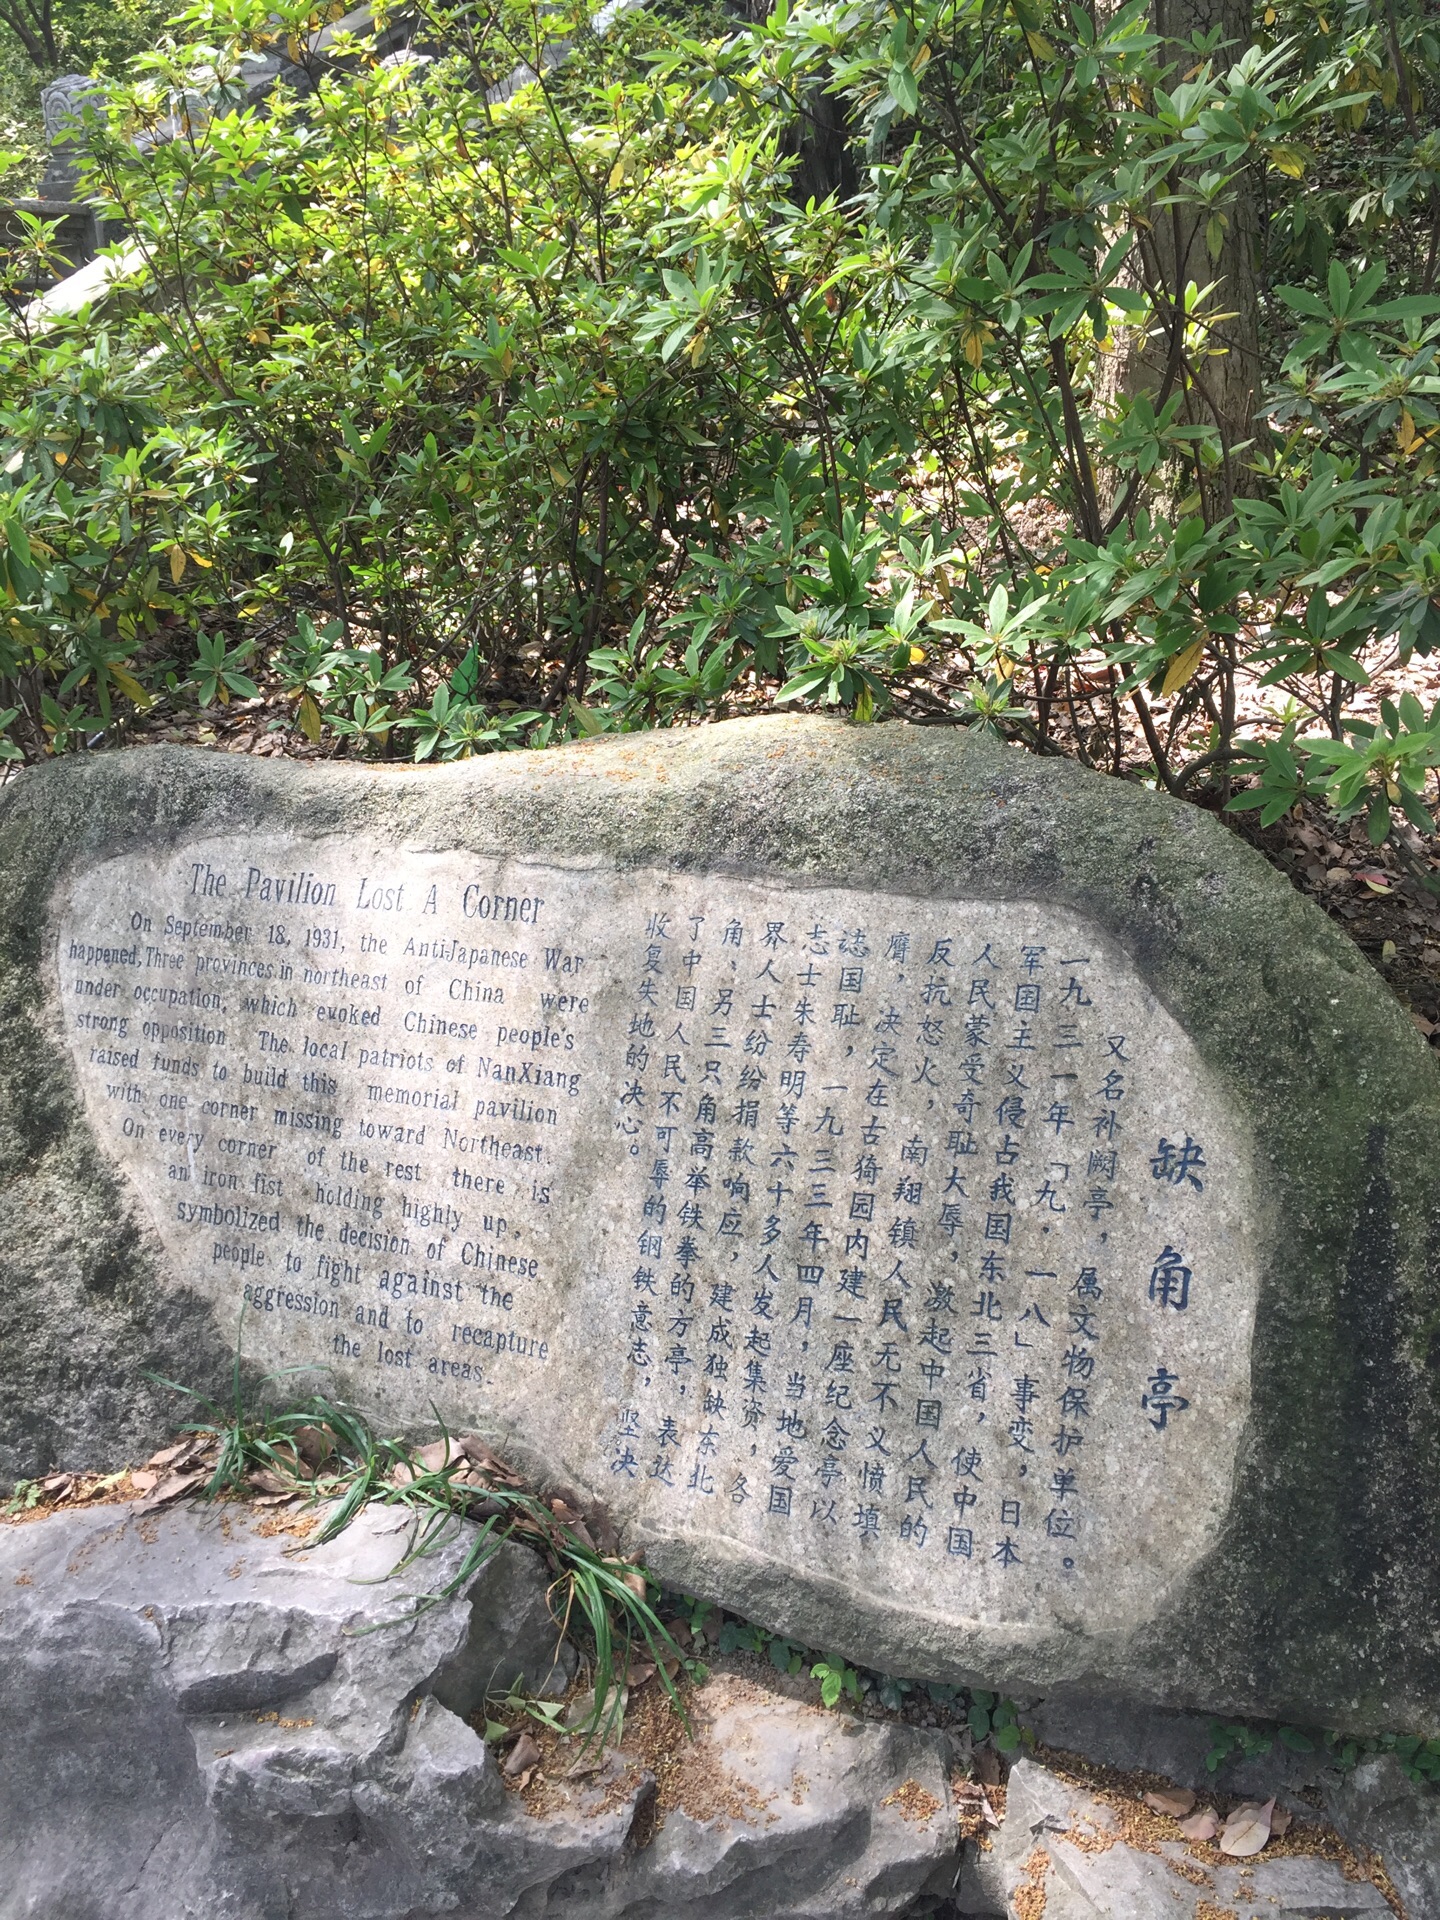 The Pavilion Lost A Corner
On September 18, 1931, the Anti-Japanese War
happened, Three provinces in northeast of China were
under occupation, which evoked Chinese people's
strong opposition. The local patriots of NanXiang
raised funds to build this memorial pavilion
with one corner missing toward Northeast.
On every corner of the rest there is
an iron fist holding highly up,
symbolized the decision of Chinese
people to fight against the
aggression and to recapture
the lost areas.
缺角亭
又名补阙亭，属文物保护单位。
一九三一年「九·一八」事变，日本
军国主义侵占我国东北三省，使中国
人民蒙受奇耻大辱，激起中国人民的
反抗怒火，南翔镇人民无不义愤填
膺，决定在古猗园内建一座纪念亭以
志国耻，一九三三年四月，当地爱国
志士朱寿明等六十多人发起集资，各
界人士纷纷捐款响应，建成独缺东北
角、另三只角高举铁拳的方亭，表达
了中国人民不可辱的钢铁意志，坚决
收复失地的决心。